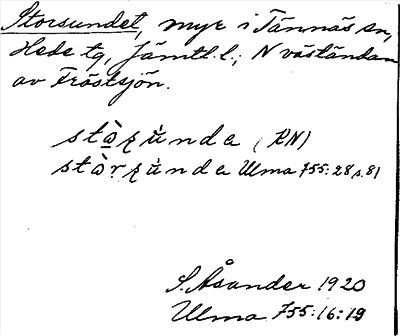 Storsundet, myr i Tännäs sn,
Hede tg, Jämtl. l.; N väständan
av Fröstsjön.
stạ̀ʂụ̀nda (RN)
stàrʂụ̀nda Ulma 755:28 s. 81
S. Åsander 1920
Ulma 755:16:19